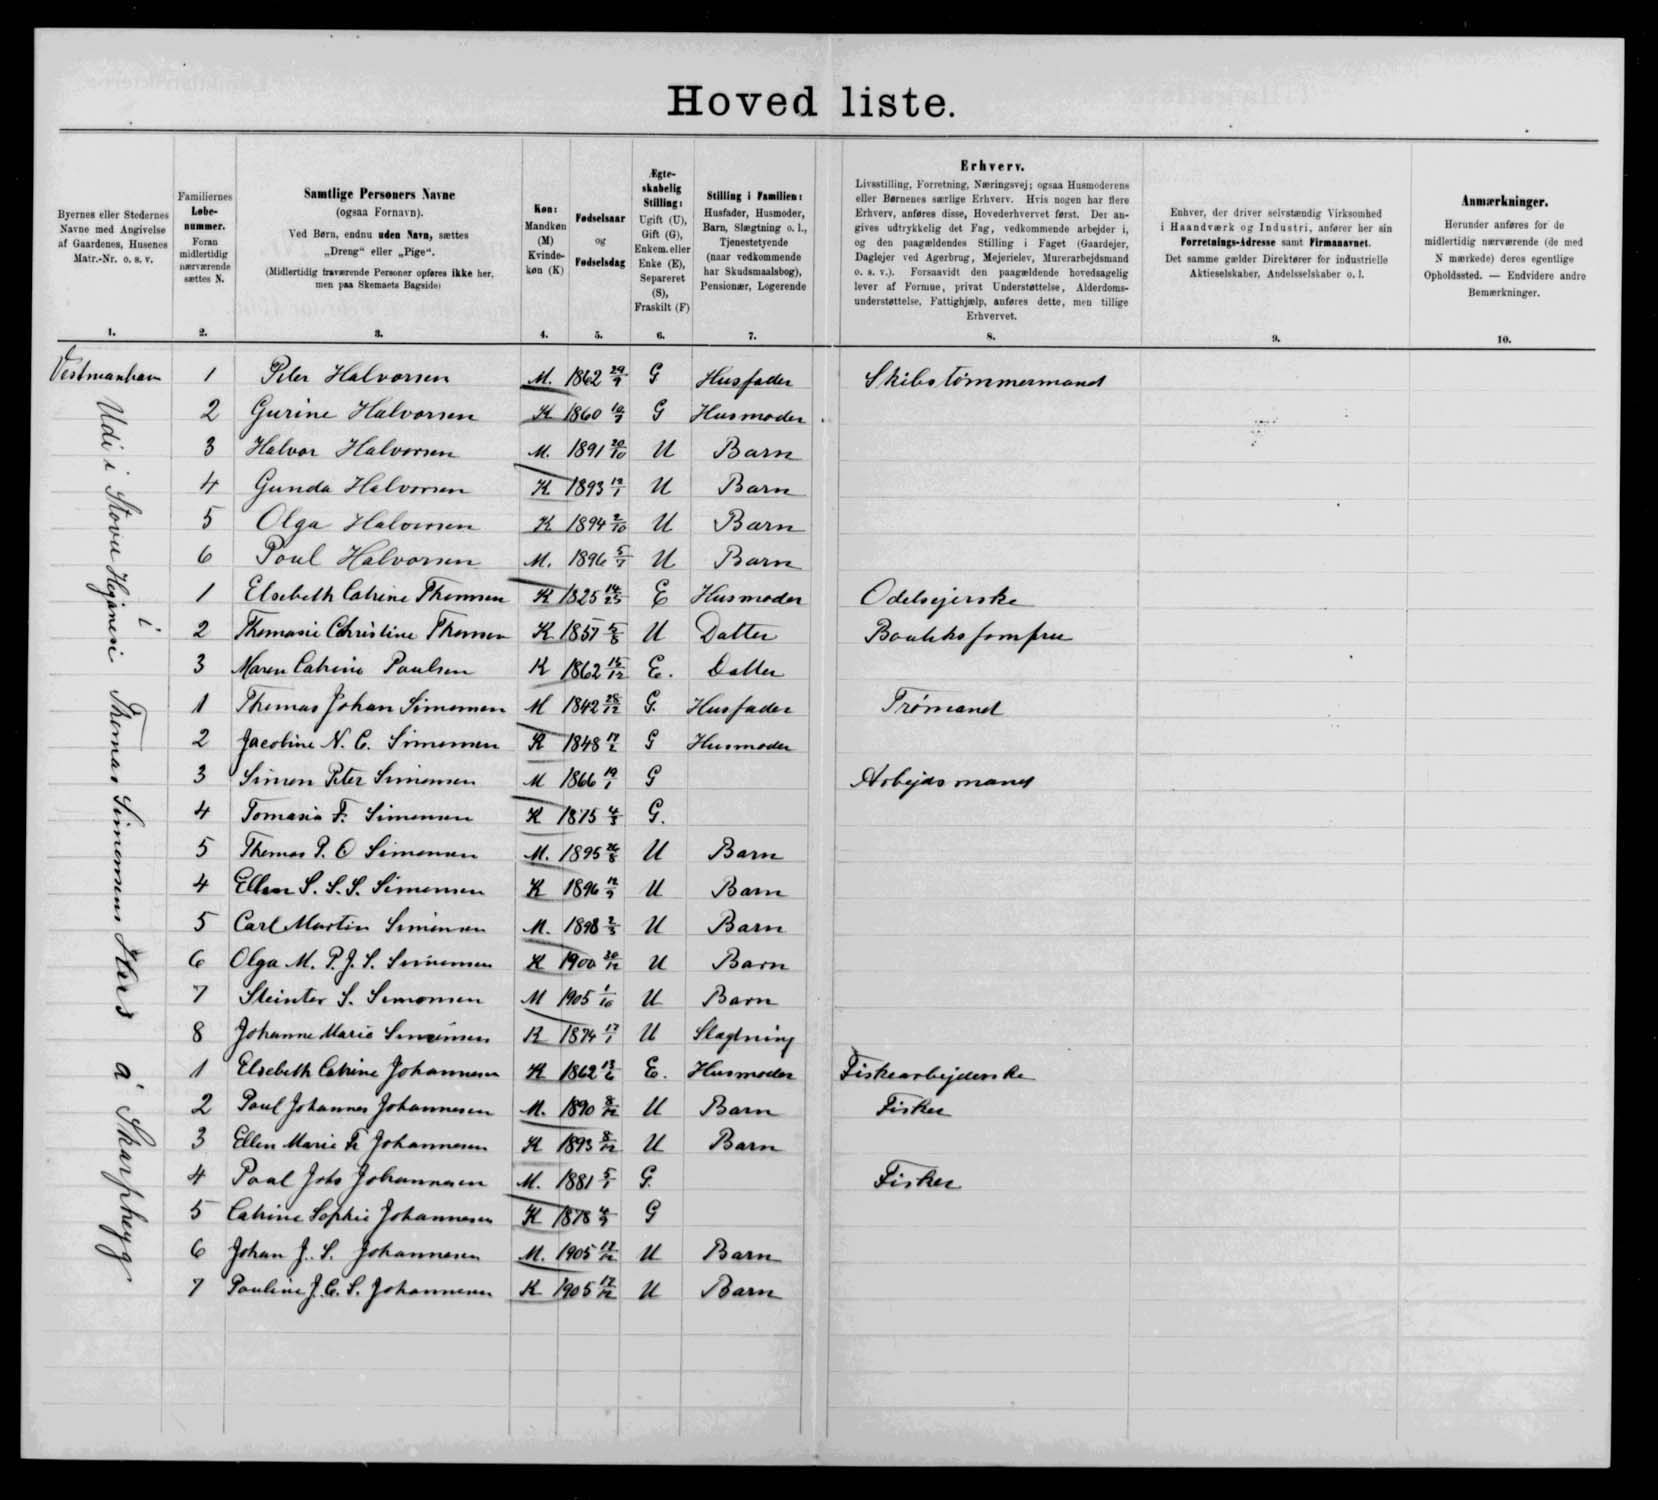 Hoved liste.
Byernes eller Stedernes Navne med Angivelse af Gaardenes, Husenes Matr.-Nr. o. s. v.
Familiernes Løbe-nummer. Foran midlertidig nærværende sættes N.
Samtlige Personers Navne
(ogsaa Fornavn).
Ved Børn, endnu uden Navn, sættes
„Dreng“ eller „Pige“.
(Midlertidig fraværende Personer opføres ikke her, men paa Skemaets Bagside)
Køn: Mandkøn (M) Kvinde-køn (K)
Fødselsaar og Fødselsdag
Ægte-skabelig Stilling: Ugift (U), Gift (G), Enkem. eller Enke (E), Separeret (S), Fraskilt (F)
Stilling i Familien: Husfader, Husmoder, Barn, Slægtning o. l., Tjenestetyende (naar vedkommende har Skudsmaalsbog), Pensionær, Logerende
Erhverv.
Livsstilling, Forretning, Næringsvej; ogsaa Husmoderens
eller Børnenes særlige Erhverv. Hvis nogen har flere
Erhverv, anføres disse, Hovederhvervet først. Der an-
gives udtrykkelig det Fag, vedkommende arbejder i,
og den paagældendes Stilling i Faget (Gaardejer,
Daglejer ved Agerbrug, Mejerielev, Murerarbejdsmand
o. s. v.). Forsaavidt den paagældende hovedsagelig
lever af Formue, privat Understøttelse, Alderdoms-
understøttelse, Fattighjælp, anføres dette, men tillige
Erhvervet.
Enhver, der driver selvstændig Virksomhed
i Haandværk og Industri, anfører her sin
Forretnings-Adresse samt Firmanavnet.
Det samme gælder Direktører for industrielle
Aktieselskaber, Andelsselskaber o. l.
Anmærkninger.
Herunder anføres for de
midlertidig nærværende (de med
N mærkede) deres egentlige
Opholdssted. — Endvidere andre
Bemærkninger.
1. 2. 3. 4. 5. 6. 7. 8. 9. 10.
Vestmanhavn 1 Peter Halvorsen M. 1862 29/7 G Husfader Skibstømmermand
2 Gurine Halvorsen K 1860 10/7 G Husmoder
3 Halvor Halvorsen M. 1891 20/10 U Barn
4 Gunda Halvorsen K 1893 12/1 U Barn
5 Olga Halvorsen K 1894 2/10 U Barn
6 Poul Halvorsen M. 1896 5/7 U Barn
1 Elsebeth Catrine Thomsen K 1825 E Husmoder Odelsejerske
2 Thomasie Christine Thomsen K 1857 5/8 U Datter
3 Maren Catrine Paulsen K 1862 15/12 E. Datter
1 Thomas Johan Simonsen M 1842 28/12 G. Husfader Trømand
2 Jacobine N. C. Simonsen K 1848 17/2 G Husmoder
3 Simon Peter Simonsen M 1866 19/1 G Arbejdsmand
4 Tomasia F. Simonsen K 1875 4/3 G.
5 Thomas P. O Simonsen M. 1895 26/8 U Barn
4 Ellen S. S. S. Simonsen K 1896 12/9 U Barn
5 Carl Martin Simonsen M. 1898 2/3 U Barn
6 Olga M. P. J. S. Simonsen K 1900 20/12 U Barn
7 Steintor S. Simonsen M 1905 1/10 U Barn
8 Johanne Marie Simonsen K 1874 17/1 U Slægtning
1 Elsebeth Catrine Johannesen K 1862 13/6 E. Husmoder Fiskearbejderske
2 Poul Johannes Johannesen M. 1890 8/12 U Barn Fisker
3 Ellen Marie F. Johannesen K 1893 8/12 U Barn
4 Poul Johs Johannesen M. 1881 5/1 G. Fisker
5 Catrine Sophie Johannesen K 1878 4/9 G
6 Johan J. S. Johannesen M. 1905 17/12 U Barn
7 Pauline J. C. S. Johannesen K 1905 17/12 U Barn
Udi i Stovu Hejaneni i Thomas Simonsens Hus á Skarpheyg